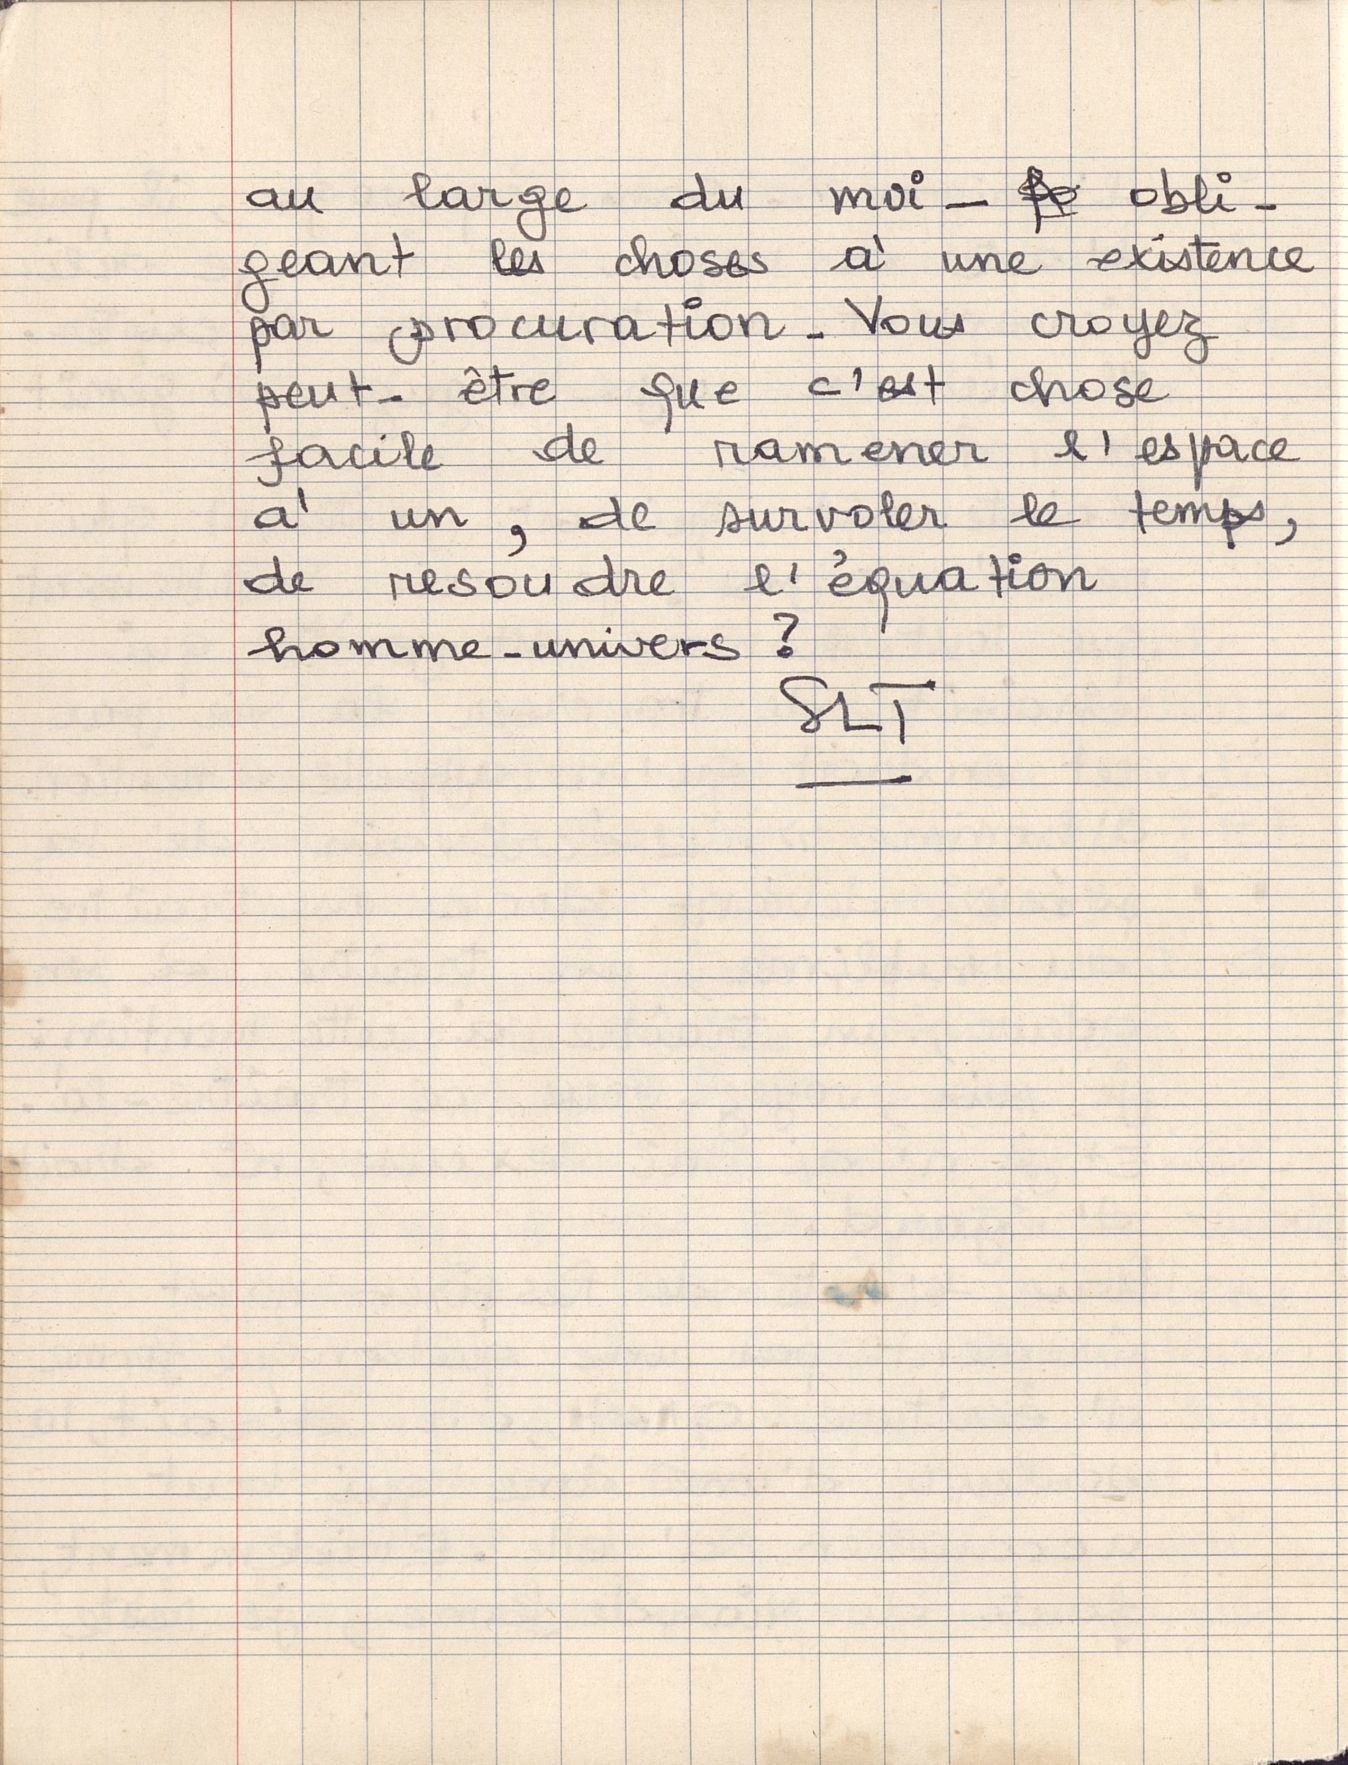 au large du moi - obli-
geant les choses à une existence
par procuration - Vous croyez
peut-être que c'est chose
facile de ramener l'espace
à un, de survoler le temps,
de resoudre l'équation
homme-univers ?
SLT